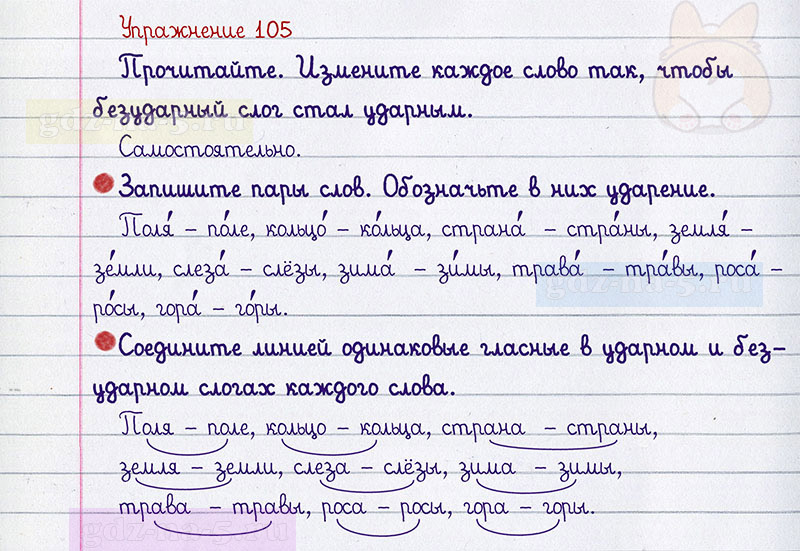 Упражнение 105
Прочитайте. Измените каждое слово так, чтобы
безударный слог стал ударным.
gdz-na-5.ru
Самостоятельно.
Запишите пары слов. Обозначьте в них ударение.
Поля́ – по́ле, кольцо́ – ко́льца, страна́ – стра́ны, земля́ –
зе́мли, слеза́ – слёзы, зима́ – зи́мы, трава́ – тра́вы, роса́ –
gdz-na-5.ru
ро́сы, гора́ – го́ры.
Соедините линией одинаковые гласные в ударном и без-
ударном слогах каждого слова.
Поля – поле, кольцо – кольца, страна – страны,
земля – земли, слеза – слёзы, зима – зимы,
трава – травы, роса – росы, гора – горы.
gdz-na-5.ru